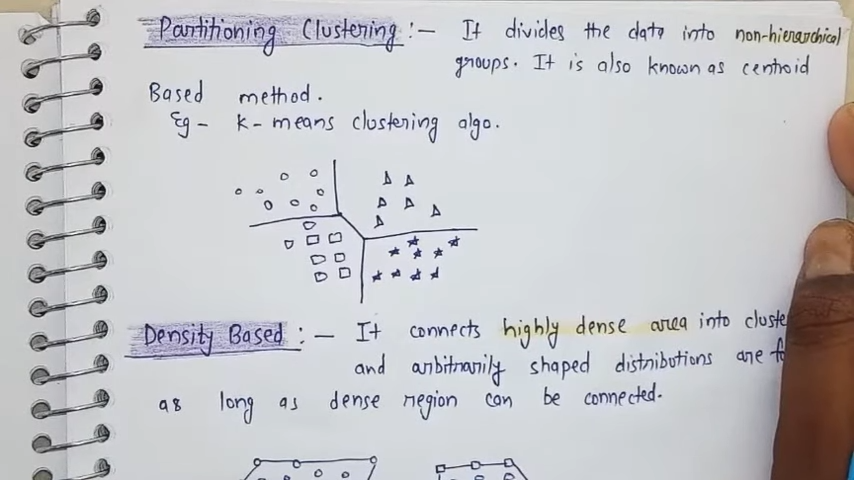 Partitioning Clustering :- It divides the data into non-hierarchical
groups. It is also known as centroid
Based method.
Eg- k-means clustering algo.
Density Based :- It connects highly dense area into
and arbitrarily shaped distributions are
as long as dense region can be connected.